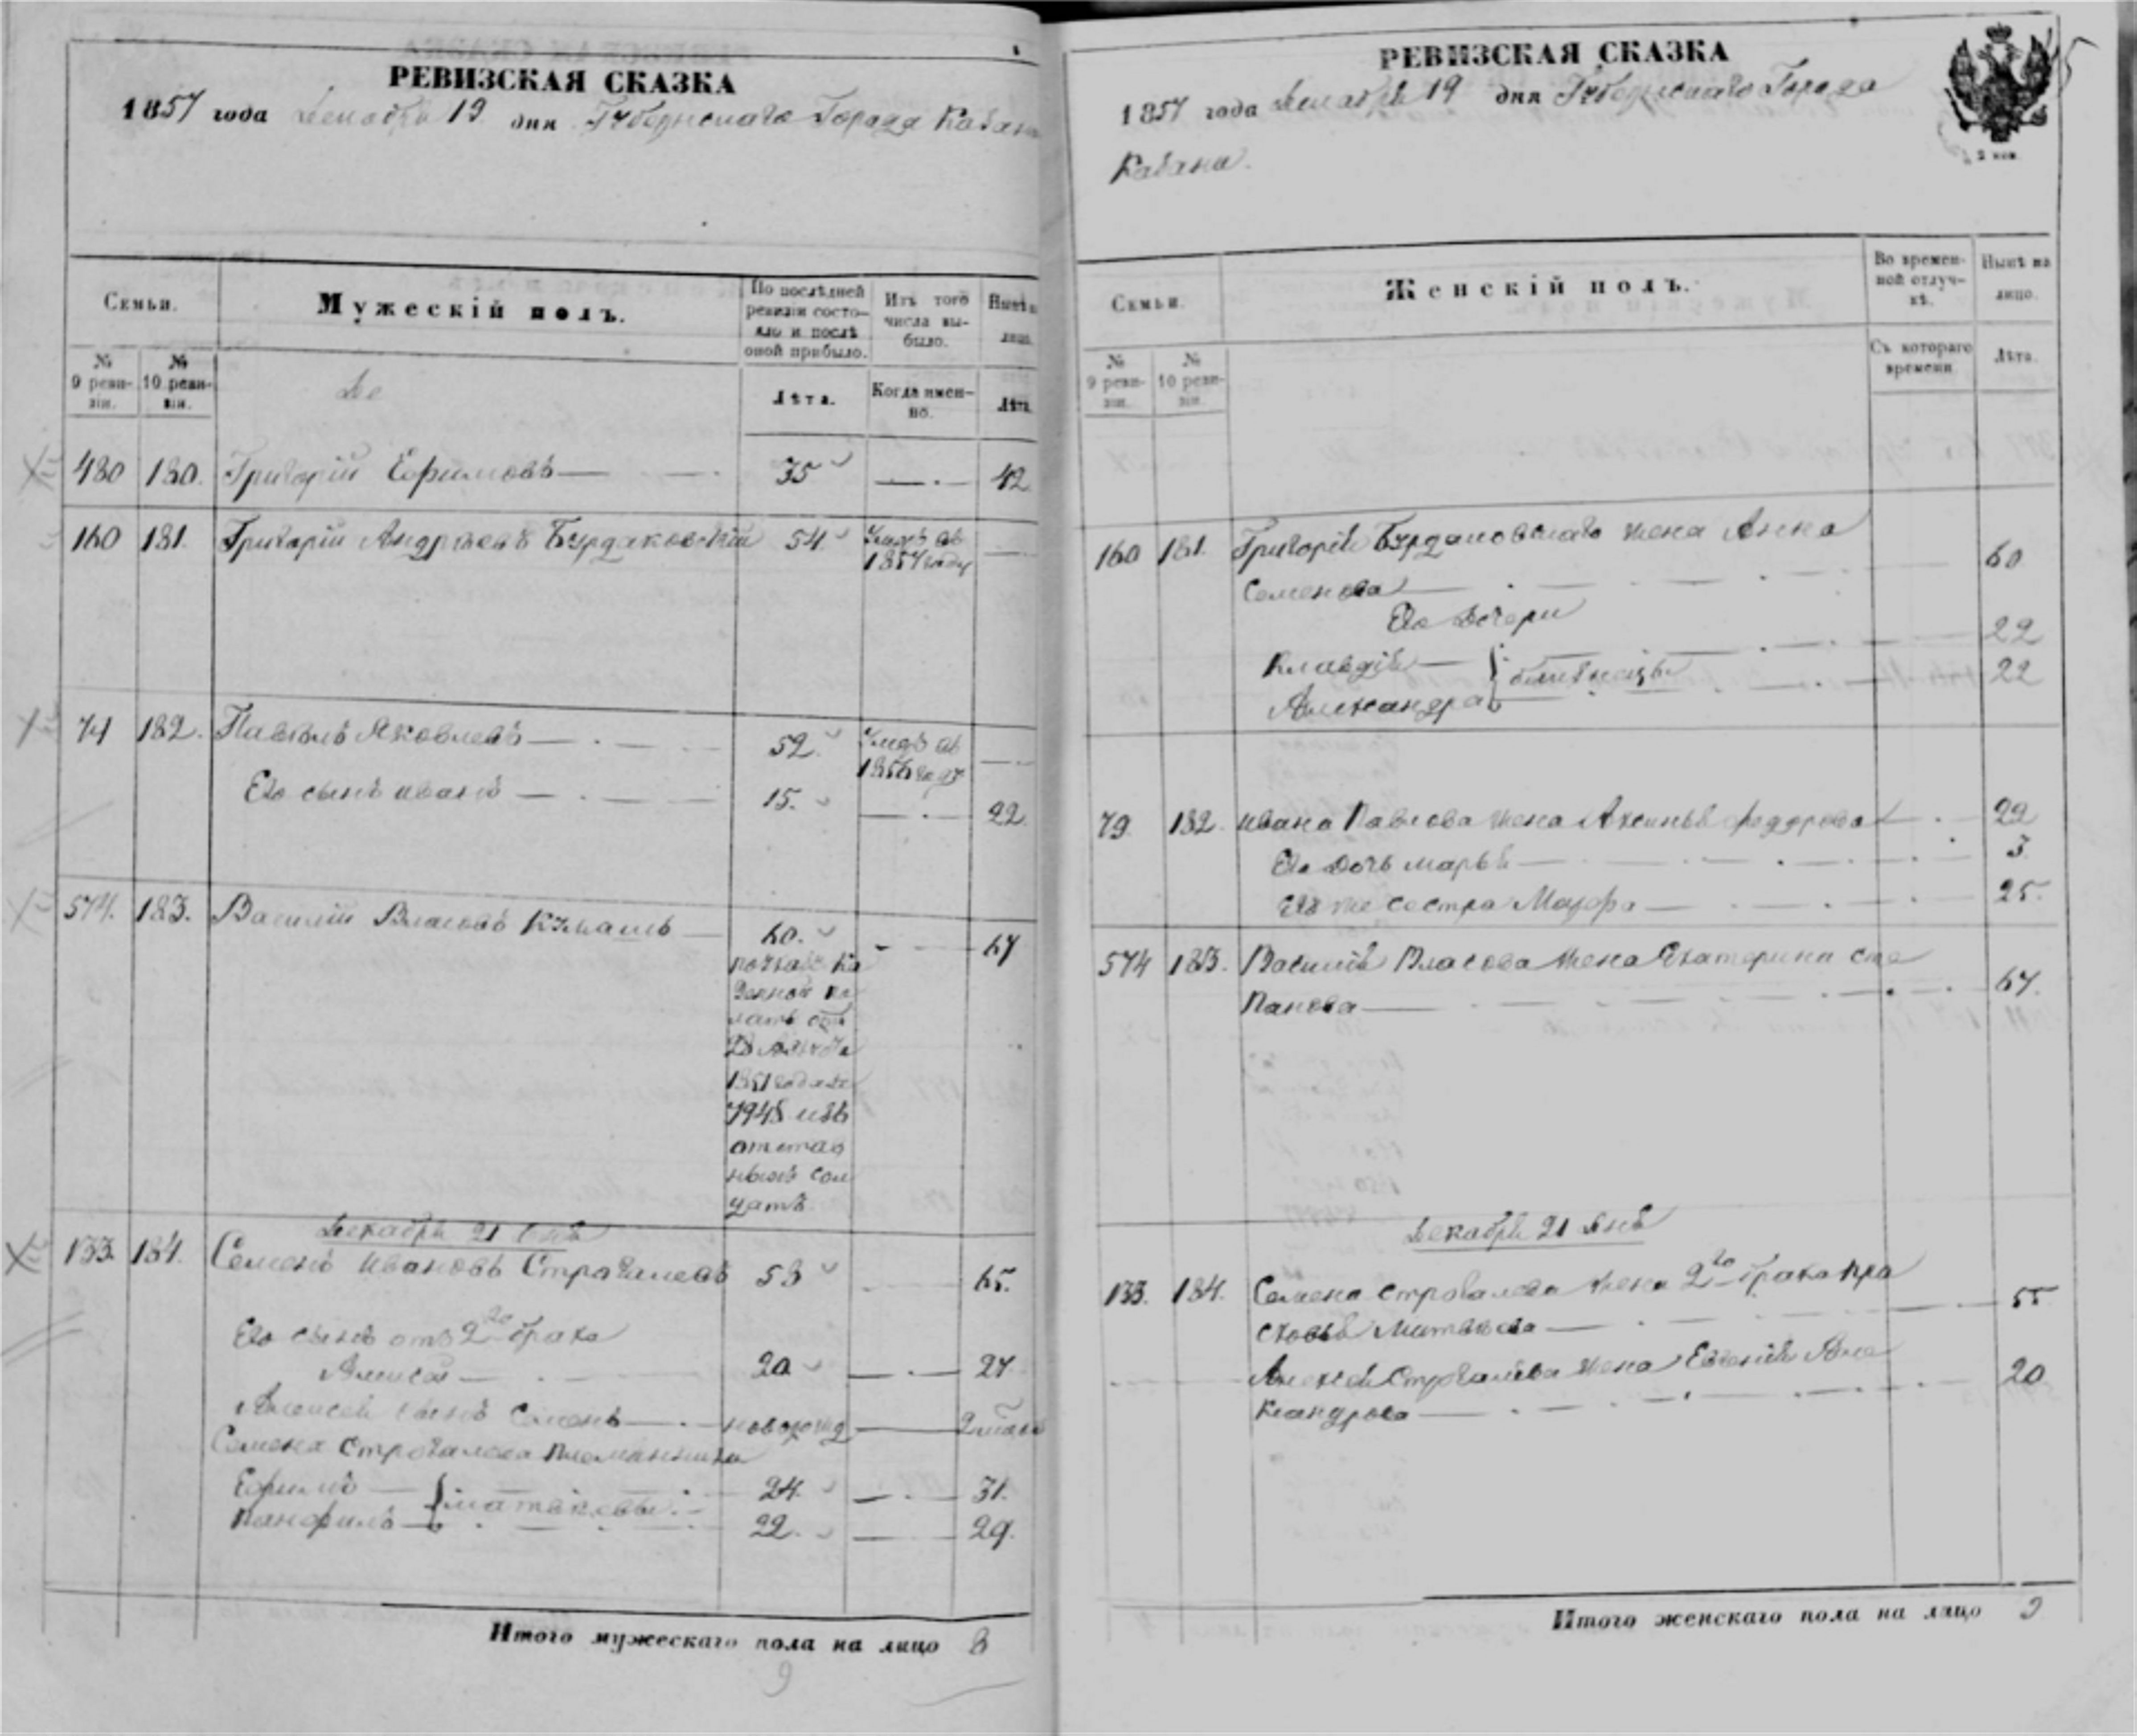 РЕВИЗСКАЯ СКАЗКА
1857 года Декабря 19 дня Губернскаго Города Казани
Семьи.
Мужескій полъ.
По послѣдней ревизіи состояло и послѣ оной прибыло.
Изъ того числа выбыло.
Нынѣ на лицо.
№ 9 ревизіи.
№ 10 ревизіи.
Де
Лѣта.
Когда именно.
Лѣта.
480 180. Григорій Ефимовъ 35 42
160 181. Григорій Андреевъ Бурдаковскій 54. Умеръ въ
1857 году
182. Павелъ Яковлевъ 52. Умеръ въ
1856 году
Его сынъ иванъ 15. 22.
574. 183. Василій Власовъ 60. 67
ленной па
латы отъ
1851 года за
7948 изъ
отстав
ныхъ сол
датъ
Декабря 21 дня
133. 184. Семенъ Ивановъ Строгалевъ 58 65.
Его сынъ отъ 2го брака
Алексей 20 27.
Алексея сынъ Семенъ новорожд
Семена Строгалева племянники
Ефимъ 24. 31.
Панфилъ 22. 29.
Итого мужескаго пола на лицо 8
9
РЕВИЗСКАЯ СКАЗКА
1857 года Декабря 19 дня Губернскаго Города
Казани.
Семьи.
Женскій полъ.
Во временной отлучкѣ.
Нынѣ на лицо.
№ 9 ревизіи.
№ 10 ревизіи.
Съ котораго времени.
Лѣта.
160 181. Григорія Бурдаковскаго жена Анна
Семенова 60
Его дочери
Клавдія 22
Александра близнецы 22
79. 182. ивана Павлова жена Аксинья федорова 22
Его дочь марья 3
Его же сестра Марфа 25.
574 183. Василія Власова жена Екатерина сте
панова 67.
Декабря 21 дня
133. 184. Семена Строгалева жена 2го брака Пра
сковья 55
Алексея Строгалева жена Евгенія Але
ксандрова 20
Итого женскаго пола на лицо 9